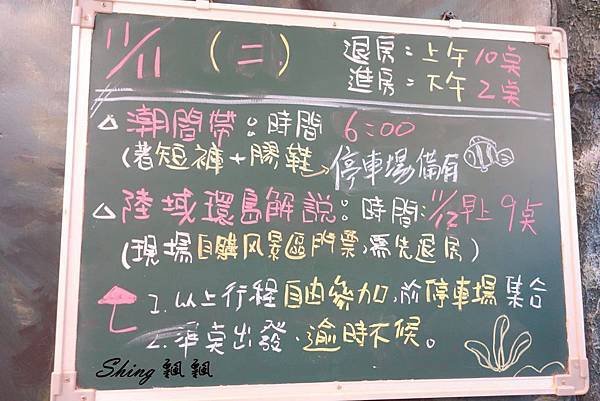 11/11 (二)
退房：上午10桌
進房：下午2桌
△潮間帶：時間 6:00
(著短褲+膠鞋→停車場備有
△陸域環島解說：時間：11/12早上9桌
(現場自購风景區門票，需先退房)
1.以上行程自由參加，前停車場集合
2.準桌出發、逾時不候。
Shing 飄飄